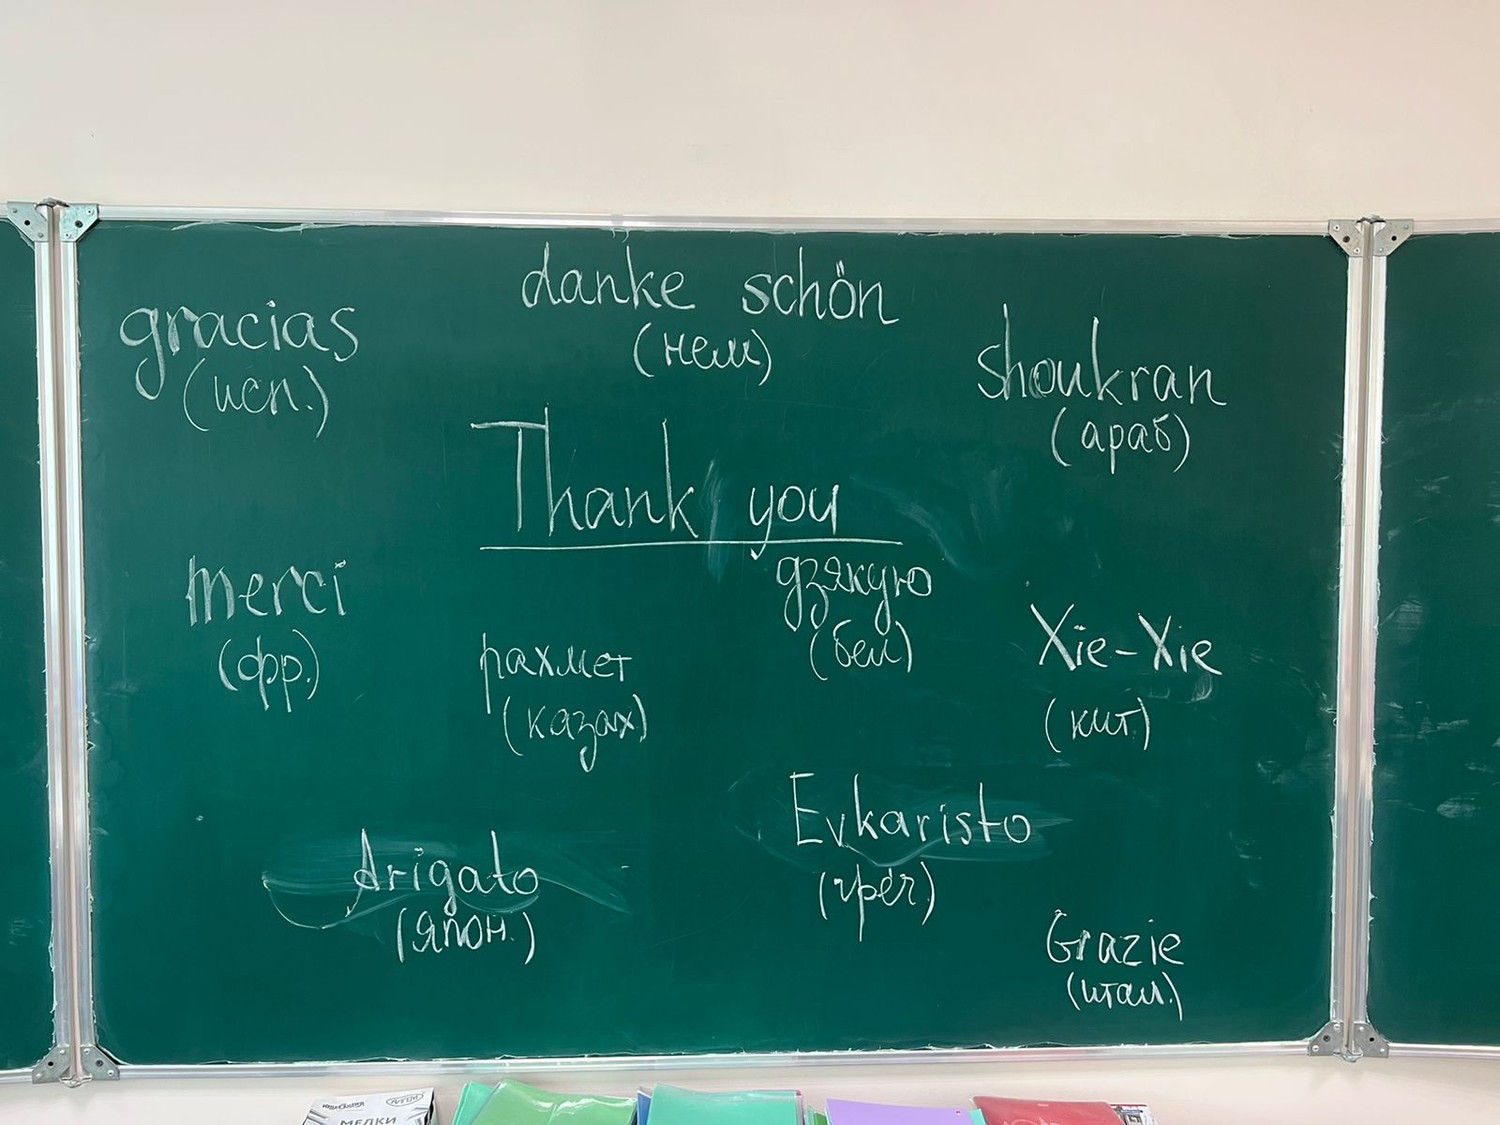 danke schön
(нем)
gracias
(исп.)
shoukran
(араб)
Thank you
merci
(фр.)
дзякую
(бел)
рахмет
(казах)
Xie-Xie
(кит.)
Evkaristo
(греч.)
Arigato
(япон.)
Grazie
(итал.)
МЕЛКИ